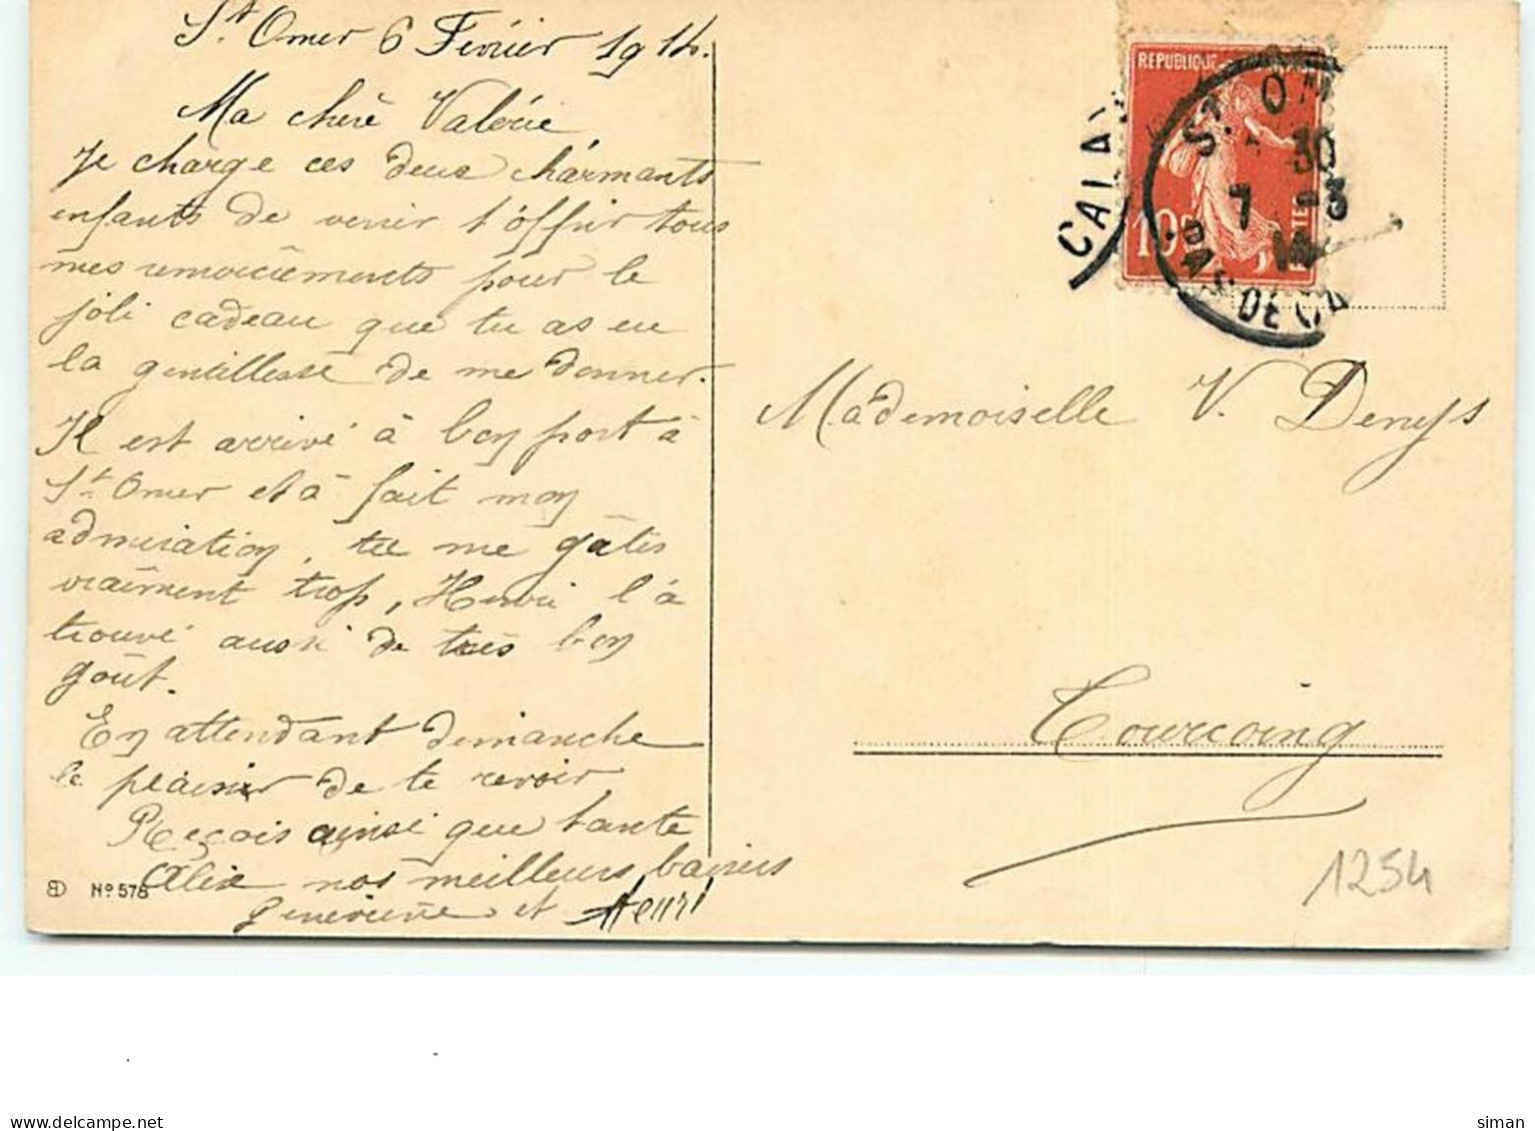 St Omer 6 Février 1914.
Ma chère Valérie,
Je charge ces deux chármants
enfants de venir t'óffrir tous
mes remerciements pour le
joli cadeau que tu as eu
la gentillesse de me donner.
Il est arrivé à bon port à
St Omer et à fait mon
admiration, tu me gâtes
vraiment trop, Henri l'à
trouvé aussi de très bon
goût.
En attendant dimanche
le plaisir de te revoir
Reçois ainsi que tante
Alix nos meilleurs baisers
Geneviève et Henri
BD Nº 578
REPUBLIQUE
10
CALAI
ST OM
30
7 -3
14
PAS DE CA
Mademoiselle V. Denys
Tourcoing
1254
siman